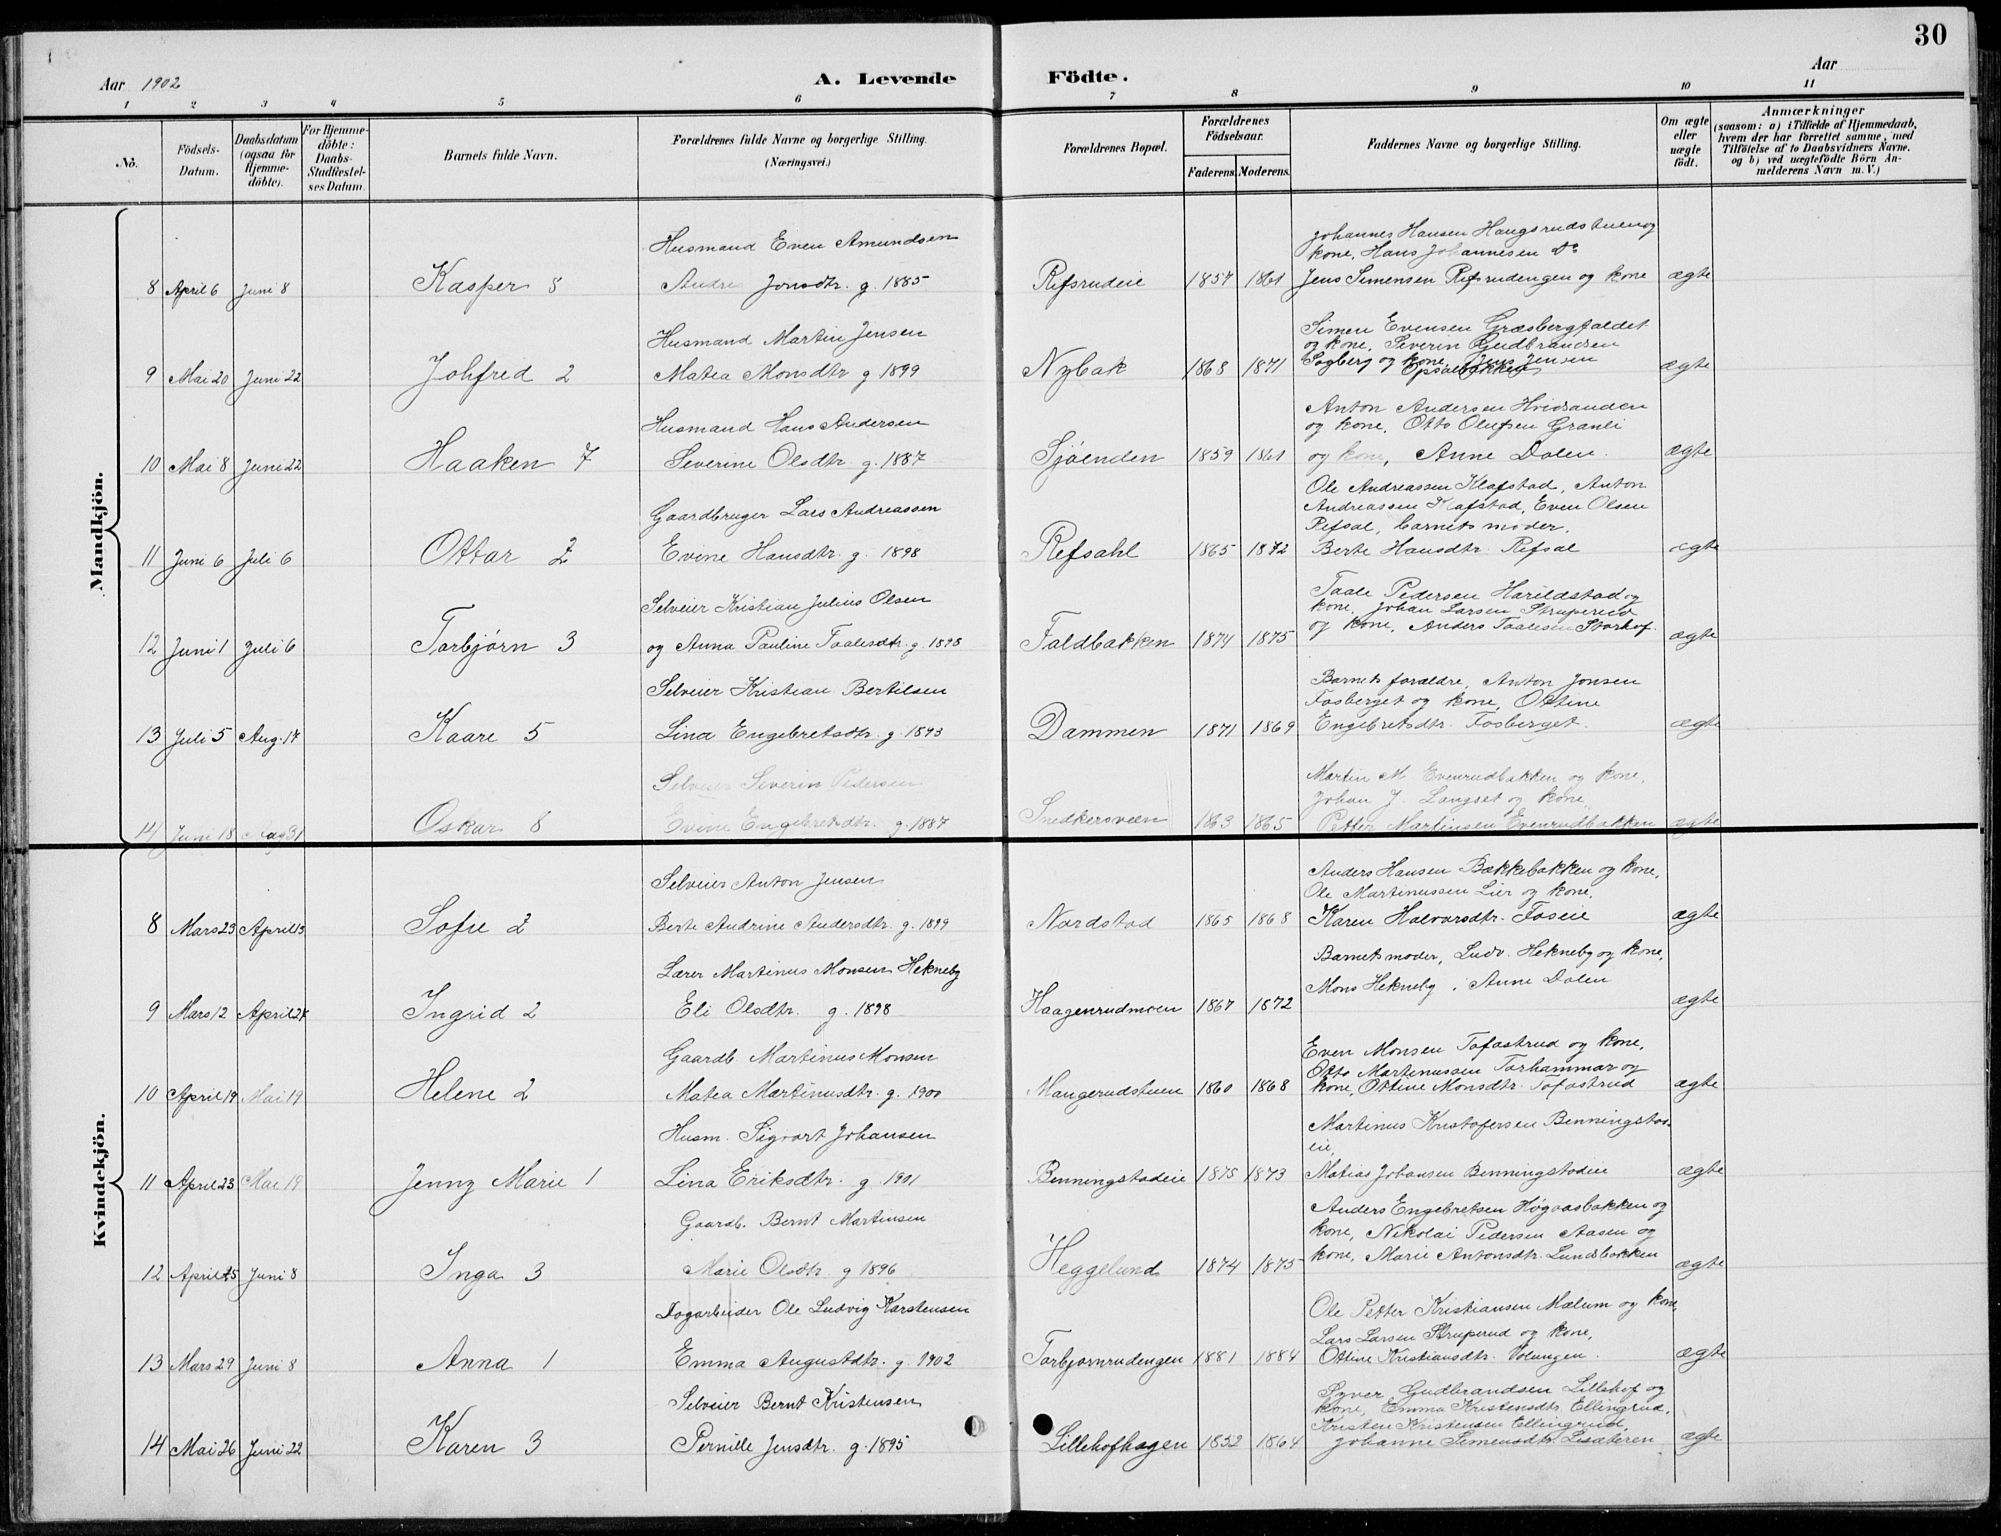 30
Aar 1902
A. Levende Födte.
Aar
1 2 3 4 5 6 7 8 9 10 11
No.
Födsels-Datum.
Daabsdatum (ogsaa for Hjemme-döbte).
For Hjemme-döbte: Daabs-Stadfæstel-ses Datum.
Barnets fulde Navn.
Forældrenes fulde Navne og borgerlige Stilling. (Næringsvei.)
Forældrenes Bopæl.
Forældrenes Födselsaar.
Faderens. Moderens.
Faddernes Navne og borgerlige Stilling.
Om ægte eller uægte födt.
Anmærkninger
(saasom: a) i Tilfælde af Hjemmedaab, hvem der har forrettet samme, med Tilföielse af to Daabsvidners Navne. og b) ved uægtefödte Börn An-melderens Navn m. V.)
Mandkjön.
Husmand Even Amundsen
Johannes Hansen Haugsrudstuen og
kone, Hans Johannesen Do
8 April 6 Juni 8 Kasper 8 Jonsdtr. g. 1885 Refsrudeie 1857 1861 Jens Simensen Refsrudengen og kone ægte
Husmand Martin Jensen
Simen Evensen Græsbergfaldet
og kone, Severin Gudbrandsen
9 Mai 20 Juni 22 Johfred 2 Matea Monsdtr g 1899 Nybak 1868 1871 Sogberg og kone, Jens Jensen ægte
Husmand Hans Andersen
Anton Andersen Hvidsanden
og kone, Otto Olufsen Granli
10 Mai 8 Juni 22 Haaken 7 Severine Olsdtr. g. 1887 Sjöenden 1859 1861 og kone, Anne Dolen. ægte
Gaardbruger Lars Andreassen
Ole Andreassen Klafstad, Anton
Andreassen Klafstad, Even Olsen
Refsal, barnets moder,
11 Juni 6 Juli 6 Ottar 2 Evine Hansdtr. g. 1898 Refsahl 1865 1872 Berte Hansdtr. Refsal ægte
Selveier Kristian Julius Olsen
Taale Pedersen Harildstad og
kone, Johan Larsen Struperud
12 Juni 1 Juli 6 Torbjørn 3 og Anna Pauline Taalesdtr. g. 1898 Faldbakken 1874 1875 og kone, Anders Taalesen Storhof. ægte
Selveier Kristian Bertilsen
Barnets forældre, Anton Jonsen
Fosberget og kone, Ottine
13 Juli 5 Aug. 17 Kaare 5 Lina Engebretsdtr. g. 1893 Dammen 1871 1869 Engebretsdtr. Fosberget. ægte
Selveier Severin Pedersen
Martin M. Evenrudbakken og kone,
Johan J. Langset og kone,
14 Juni 18 31 Oskar 8 Evine Engebretsdtr. g. 1887 Snedkersveen 1863 1865 Petter Martinsen Evenrudbakken ægte
Kvindekjön.
Selveier Anton Jensen
Anders Hansen Bækkebakken og kone,
Ole Martinussen Lier og kone,
8 Mars 23 April 13 Sofie 2 Berte Andrine Andersdtr. g. 1899 Nordstad 1865 1868 Karen Halvorsdtr. Foseie ægte
Lærer Martinus Monsen Hekneby
Barnets moder, Ludv. Hekneby og kone,
Mons Hekneby, Anne Dolen
9 Mars 12 April 21 Ingrid 2 Eli Olsdtr. g. 1898 Haagenrudmoen 1867 1872 ægte
Gaardb. Martinus Monsen
Even Monsen Tofastrud og kone,
Otto Martinussen Torhammar og
10 April 19 Mai 19 Helene 2 Matea Martinusdtr. g. 1900 Maugerudstuen 1860 1868 kone, Ottine Monsdtr. Tofastrud ægte
Husm. Sigvart Johansen
Martinus Kristofersen Benningstad-
eie,
11 April 23 Mai 19 Jenny Marie 1 Lina Eriksdtr. g. 1901 Benningstadeie 1875 1873 Matias Johansen Benningstadeie ægte
Gaardb. Bernt Martinsen
Anders Engebretsen Høgaasbakken og
kone, Nikolai Pedersen Aasen og
12 April 15 Juni 8 Inga 3 Marie Olsdtr. g 1896 Heggelund 1874 1875 kone, Marie Antonsdtr. Lundsbakken ægte
Dagarbeider Ole Ludvig Karstensen
Ole Petter Kristiansen Mælum og kone,
Lars Larsen Struperud og kone,
13 Mars 29 Juni 8 Anna 1 Emma Augustdtr. g. 1902 Torbjørnrudengen 1881 1884 Ottine Kristiansdtr. Volungen. ægte
Selveier Bernt Kristensen
Syver Gudbrandsen Lillehof og
kone, Emma Kristensdtr. Ellingrud,
Kristen Kristensen Ellingrud,
14 Mai 26 Juni 22 Karen 3 Pernille Jensdtr. g. 1895 Lillehofhagen 1852 1864 Johanne Simensdtr. ægte